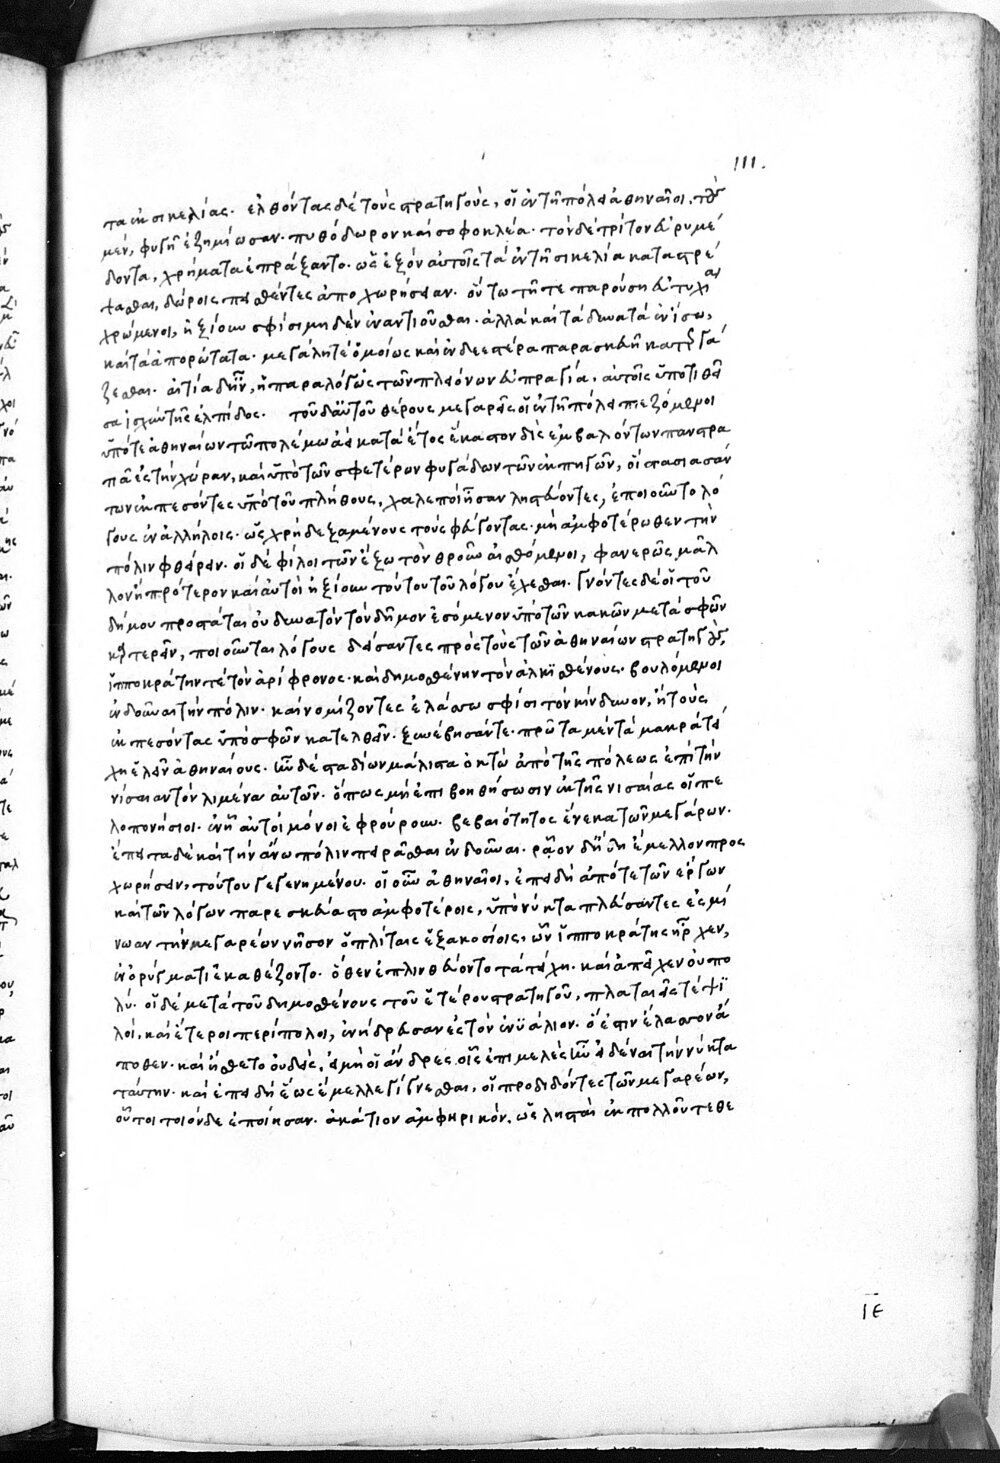 111.
τα ἐκ σικελίας. ἐλθόντας δὲ τοὺς στρατηγοὺς, οἱ ἐν τῇ πόλει ἀθηναῖοι, τοὺς
μὲν, φυγῇ ἐζημίωσαν. πυθόδωρον καὶ σοφοκλέα. τὸν δὲ τρίτον εὐρυμέ
δοντα, χρήματα ἐπράξαντο. ὡς ἐξὸν αὐτοῖς τὰ ἐν τῇ σικελία καταστρέ
ψασθαι, δώροις πεισθέντες ἀποχωρήσειαν. οὕτω τῇ τε παρούσῃ εὐτυχία
χρώμενοι, ἠξίουν σφίσι μηδὲν ἐναντιοῦσθαι. ἀλλὰ καὶ τὰ δυνατὰ ἐν ἴσω,
καὶ τὰ ἀπορώτατα. μεγάλη τὲ ὁμοίως καὶ ἐνδεεστέρα παρασκευῇ κατεργά
ζεσθαι. αἰτία δ' ἦν, ἡ παραλόγως τῶν πλειόνων εὐπραγία, αὐτοῖς ὑποτιθεῖ
σα ἰσχὺν τῆς ἐλπίδος. τοῦ δ' αὐτοῦ θέρους μεγαρῆς οἱ ἐν τῇ πόλει πιεζόμενοι
ὑπό τε ἀθηναίων τῶ πολέμω ἀεὶ κατὰ ἔτος ἕκαστον δὶς ἐμβαλόντων πανστρα
τιᾶ ἐς τὴν χώραν, καὶ ὑπὸ τῶν σφετέρων φυγάδων τῶν ἐκ πηγῶν, οἳ στασιασάν
των ἐκπεσόντες ὑπὸ τοῦ πλήθους, χαλεποὶ ἦσαν ληστεύοντες, ἐποιοῦντο λό
γους ἐν ἀλλήλοις. ὡς χρὴ δεξαμένους τοὺς φεύγοντας. μὴ ἀμφοτέρωθεν τὴν
πόλιν φθείρειν. οἱ δὲ φίλοι τῶν ἔξω τὸν θροῦν αἰσθόμενοι, φανερῶς μᾶλ
λον ἢ πρότερον καὶ αὐτοὶ ἠξίουν τούτου τοῦ λόγου ἔχεσθαι. γνόντες δὲ οἱ τοῦ
δήμου προστάται οὐ δυνατὸν τὸν δῆμον ἐσόμενον ὑπὸ τῶν κακῶν μετὰ σφῶν
καρτερεῖν, ποιοῦνται λόγους δείσαντες πρὸς τοὺς τῶν ἀθηναίων στρατηγοὺς,
ἱπποκράτην τὲ τὸν ἀρίφρονος. καὶ δημοσθένην τὸν ἀλκισθένους. βουλόμενοι
ἐνδοῦναι τὴν πόλιν. καὶ νομίζοντες ἐλάσσω σφίσι τὸν κίνδυνον, ἢ τοὺς
ἐκπεσόντας ὑπὸ σφῶν κατελθεῖν. ξυνέβησάν τε. πρῶτα μὲν τὰ μακρὰ τεί
χη ἑλεῖν ἀθηναίους. ἦν δὲ σταδίων μάλιστα ὀκτὼ ἀπὸ τῆς πόλεως ἐπὶ τὴν
νίσαιαν τὸν λιμένα αὐτῶν. ὅπως μὴ ἐπιβοηθήσωσιν ἐκ τῆς νισαίας οἱ πε
λοπονήσιοι. ἐν ᾗ αὐτοὶ μόνοι ἐφρούρουν. βεβαιότητος ἕνεκα τῶν μεγάρων.
ἔπειτα δὲ καὶ τὴν ἄνω πόλιν πειρᾶσθαι ἐνδοῦναι. ῥᾷον δ' ἤδη ἔμελλον προς
χωρήσειν, τούτου γεγενημένου. οἱ οὖν ἀθηναῖοι, ἐπειδὴ ἀπό τε τῶν ἔργων
καὶ τῶν λόγων παρεσκεύαστο ἀμφοτέροις, ὑπὸ νύκτα πλεύσαντες ἐς μί
νωαν τὴν μεγαρέων νῆσον ὁπλίταις ἑξακοσίοις, ὧν ἱπποκράτης ἦρχεν,
ἐν ὀρύγματι ἐκαθέζοντο. ὅθεν ἐπλίνθευον τὰ τείχη. καὶ ἀπεῖχεν οὐ πο
λύ. οἱ δὲ μετὰ τοῦ δημοσθένους τοῦ ἑτέρου στρατηγοῦ, πλαταιεῖς τὲ ψι
λοὶ, καὶ ἕτεροι περίπολοι, ἐνήδρευσαν ἐς τὸν ἐνυάλιον. ὅ ἐστιν ἔλασσον ἄ
ποθεν. καὶ ἤσθετο οὐδεὶς, εἰ μὴ οἱ ἄνδρες οἷς ἐπιμελὲς ἦν εἰδέναι τὴν νύκτα
ταύτην. καὶ ἐπειδὴ ἕως ἔμελλε γίγνεσθαι, οἱ προδιδόντες τῶν μεγαρέων,
οὗτοι τοιόνδε ἐποίησαν. ἀκάτιον ἀμφηρικὸν, ὡς λησταὶ ἐκ πολλοῦ τεθε
ιε